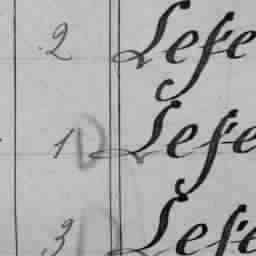 2 Lefe
1 D Lefe
3 Lefe